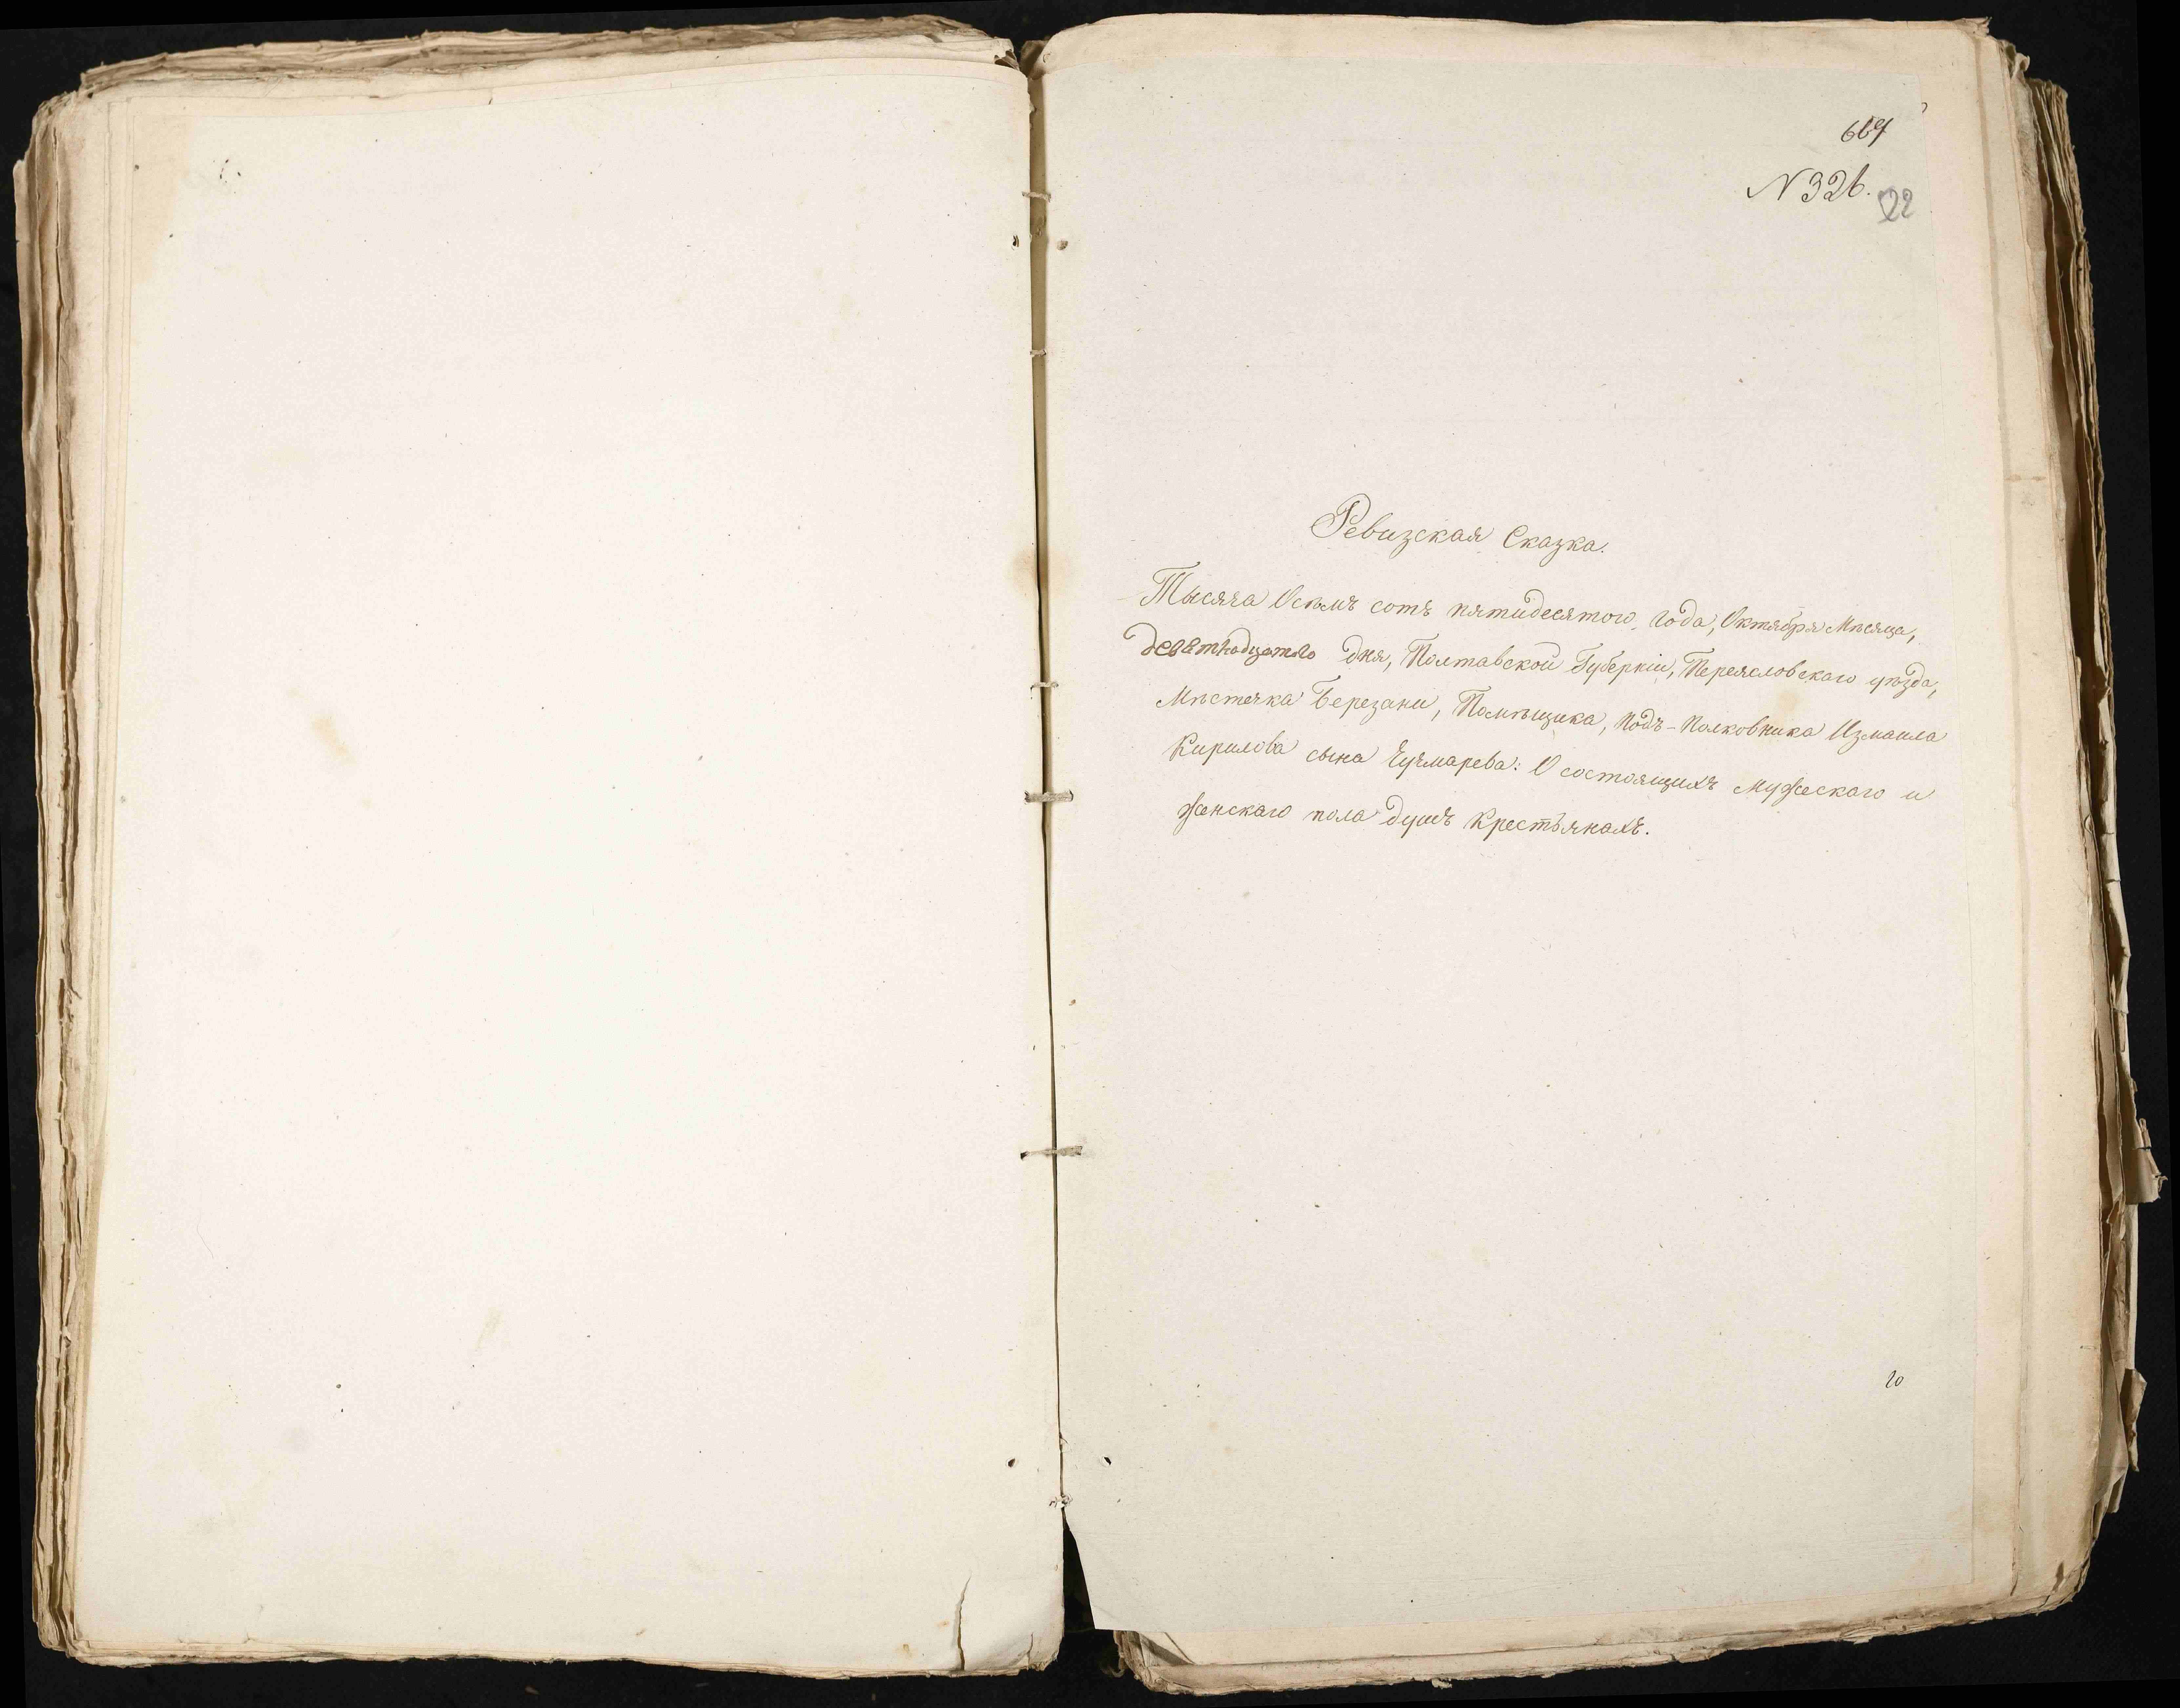 667
N 326.
22
Ревизская Сказка.
Тысяча Осьмъ сотъ пятидесятого года, Октября Мѣсяца,
девятнадцатого дня, Полтавской Губерніи, Переясловскаго уѣзда,
Мѣстечка Березани, Помѣщика, Подъ-Полковника Измаила
Кирилова сына Гучмарева: О состоящихъ Мужескаго и
женскаго пола душъ Крестьянахъ.